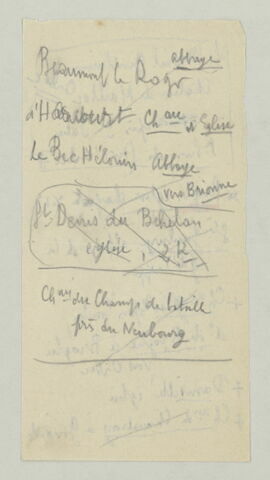 abbaye
Beaumont le Roger
d'Harcourt Ch au et Eglise
Le Bec Hélouin Abbaye
vers Brionne
St Denis du Béhélan
église, 2 K
Ch au du Champ de bataille
près du Neubourg